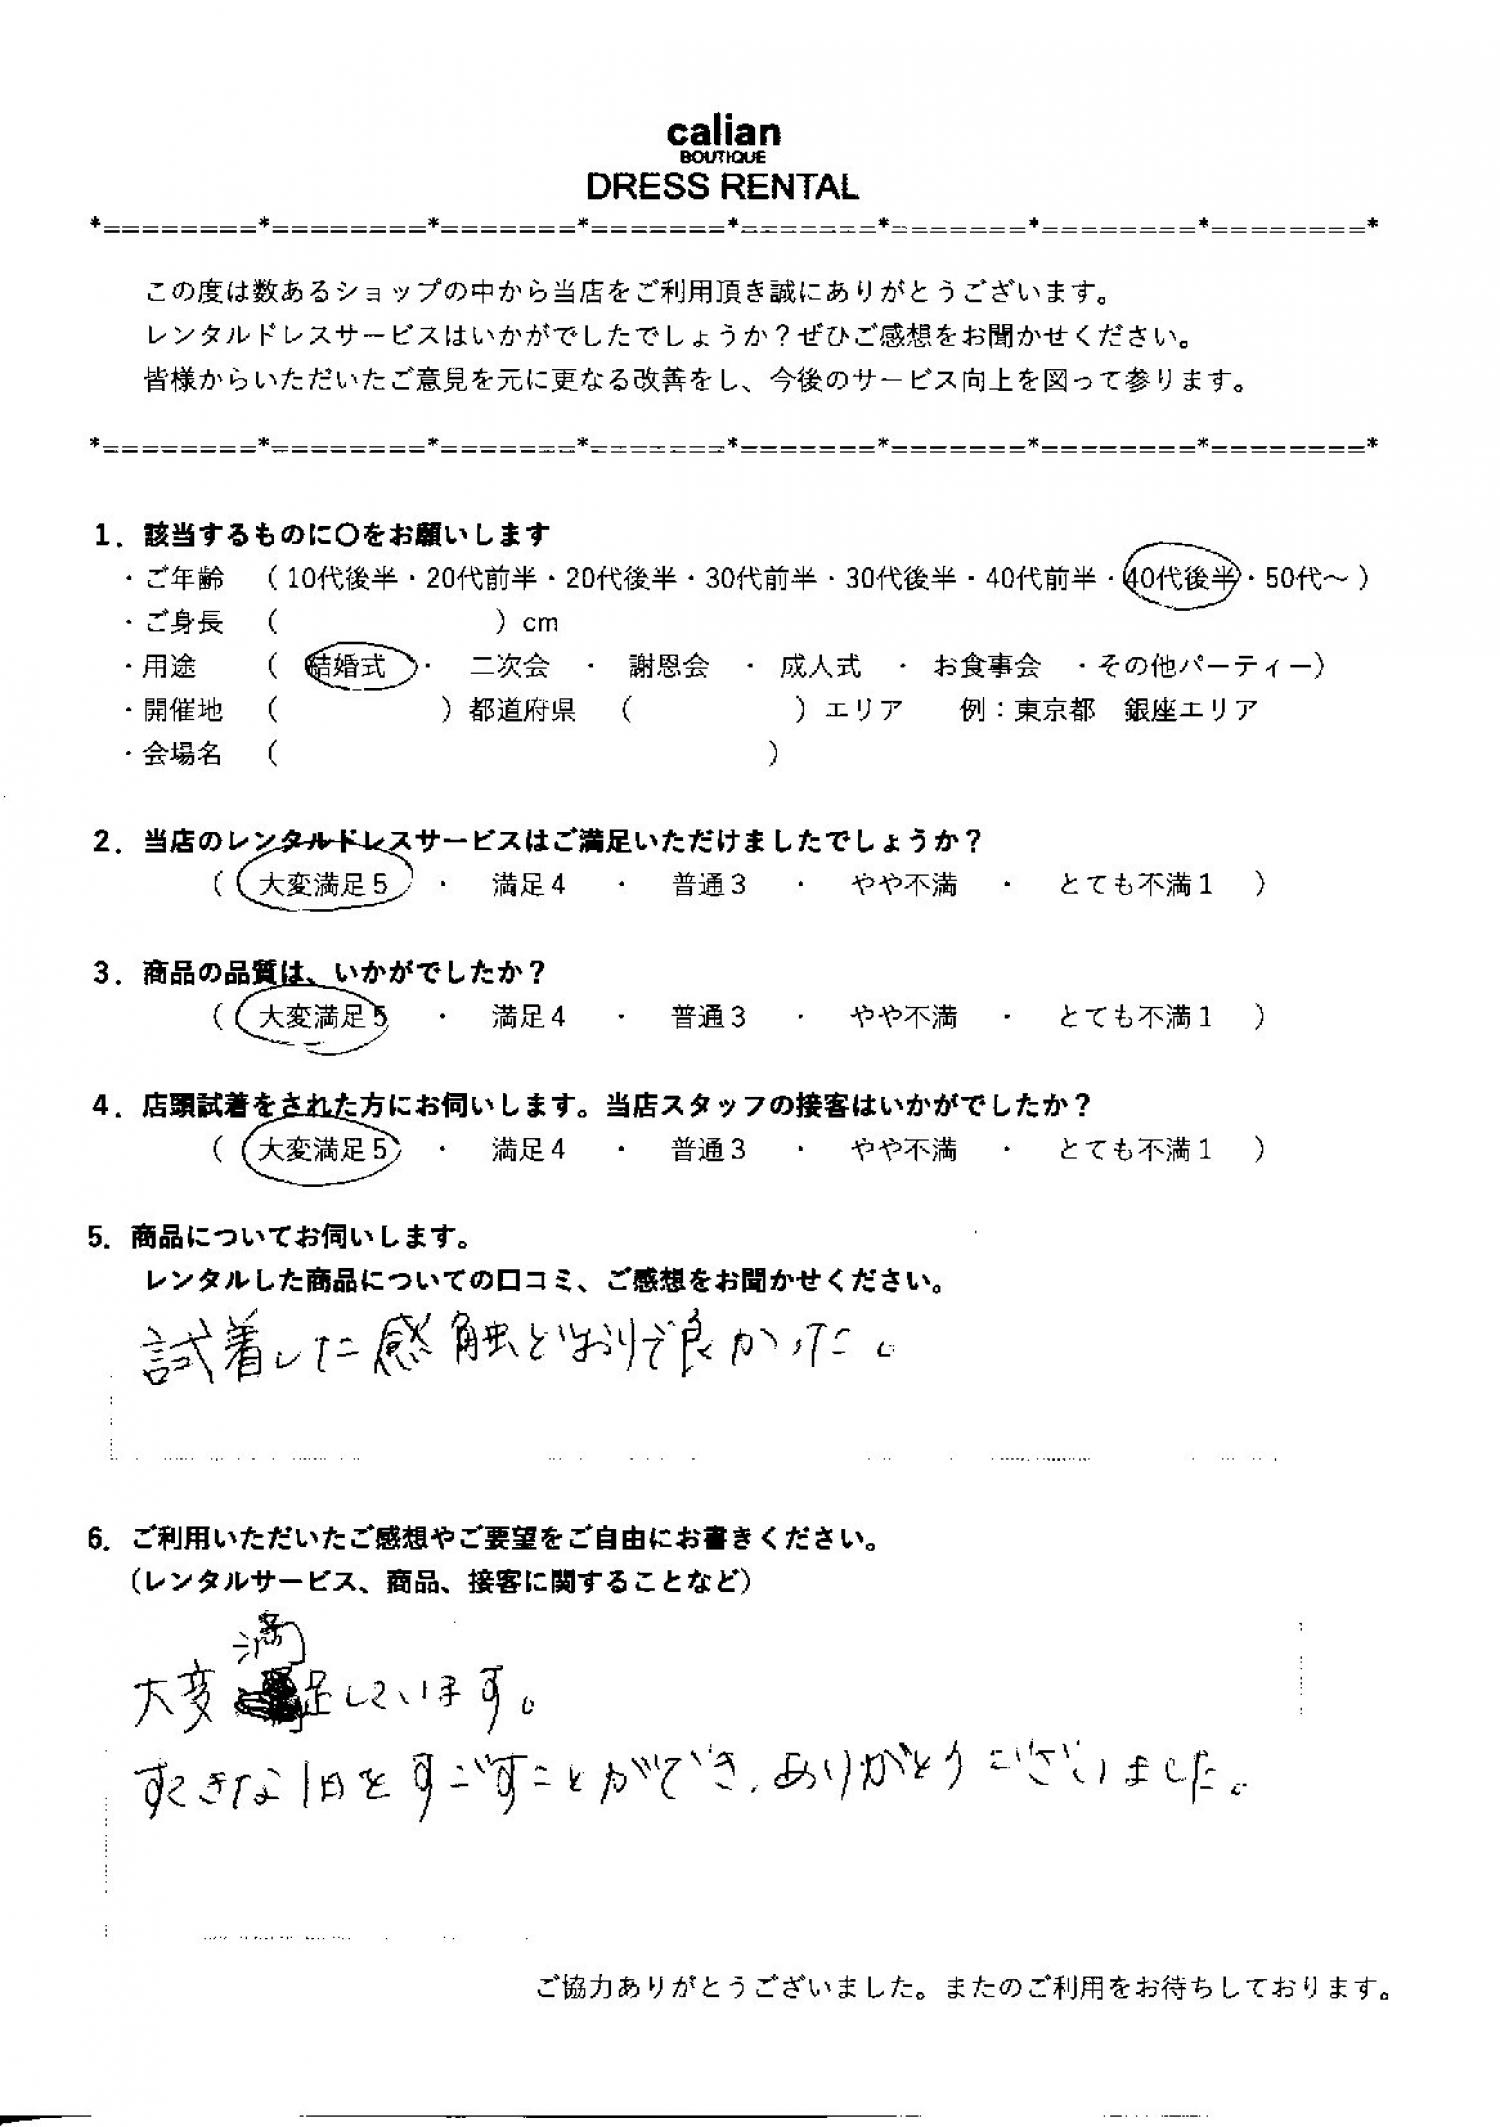 calian
BOUTIQUE
DRESS RENTAL
*========*========*=======*=======*=======*=======*========*========*
この度は数あるショップの中から当店をご利用頂き誠にありがとうございます。
レンタルドレスサービスはいかがでしたでしょうか？ぜひご感想をお聞かせください。
皆様からいただいたご意見を元に更なる改善をし、今後のサービス向上を図って参ります。
*========*========*=======*=======*=======*=======*========*========*
1．該当するものに〇をお願いします
・ご年齢　（ 10代後半・20代前半・20代後半・30代前半・30代後半・40代前半・40代後半・50代～ ）
・ご身長　（　　　　　　　　）cm
・用途　　（　結婚式　・　二次会　・　謝恩会　・　成人式　・　お食事会　・その他パーティー）
・開催地　（　　　　　　）都道府県　（　　　　　　）エリア　　例：東京都　銀座エリア
・会場名　（　　　　　　　　　　　　　　　　　　）
2．当店のレンタルドレスサービスはご満足いただけましたでしょうか？
（　大変満足５　・　満足４　・　普通３　・　やや不満　・　とても不満１　）
3．商品の品質は、いかがでしたか？
（　大変満足５　・　満足４　・　普通３　・　やや不満　・　とても不満１　）
4．店頭試着をされた方にお伺いします。当店スタッフの接客はいかがでしたか？
（　大変満足５　・　満足４　・　普通３　・　やや不満　・　とても不満１　）
5．商品についてお伺いします。
レンタルした商品についての口コミ、ご感想をお聞かせください。
試着した感触どおりで良かった。
6．ご利用いただいたご感想やご要望をご自由にお書きください。
（レンタルサービス、商品、接客に関することなど）
大変満足しています。
すてきな1日をすごすことができ、ありがとうございました。
ご協力ありがとうございました。またのご利用をお待ちしております。